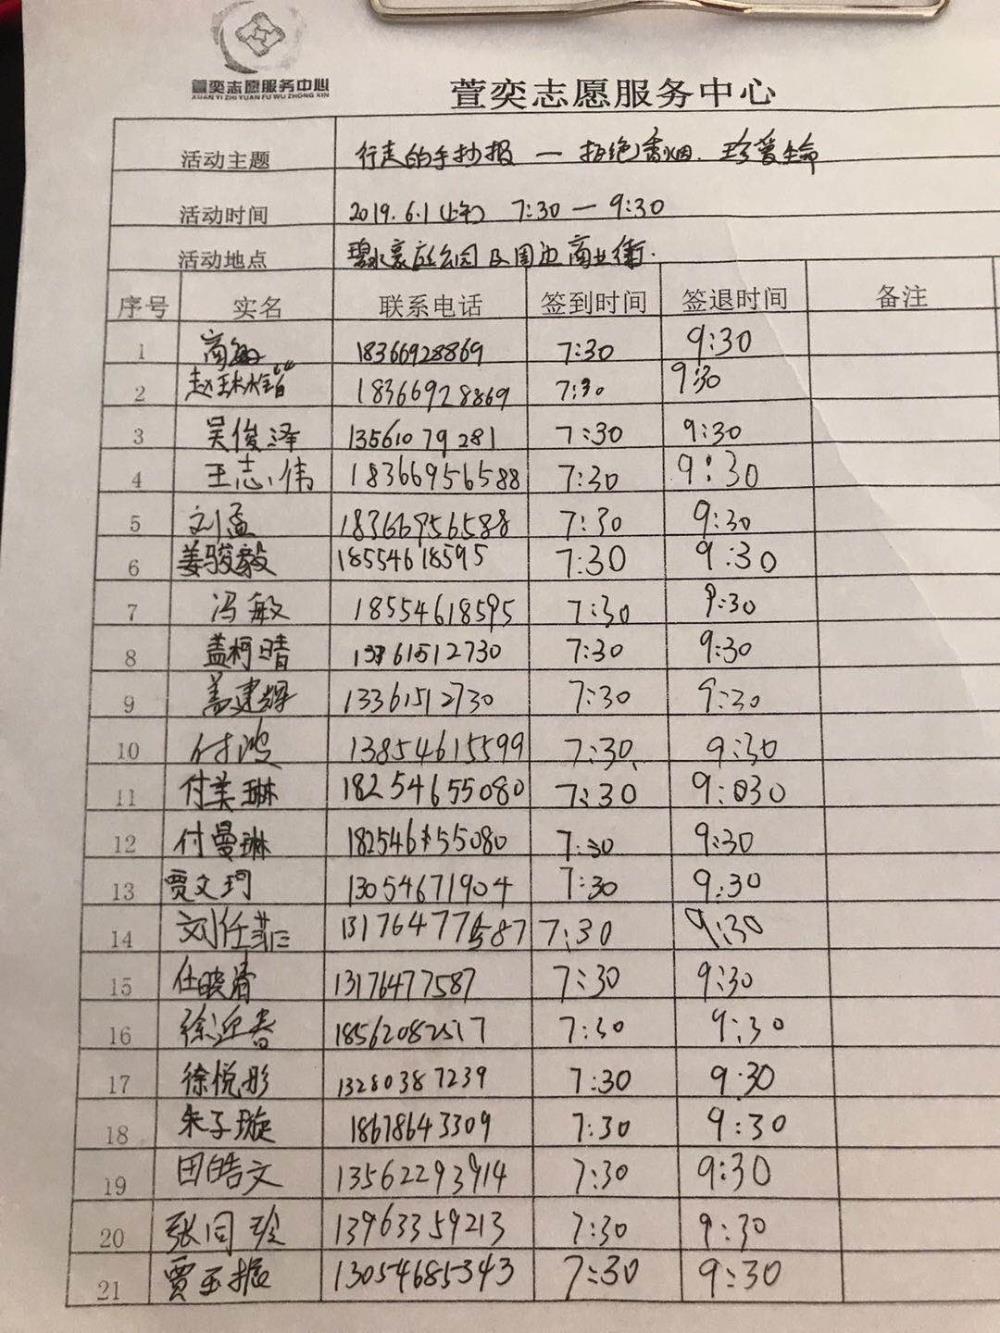 萱奕志愿服务中心
XUAN YI ZHI YUAN FU WU ZHONG XIN
萱奕志愿服务中心
活动主题 行走的手抄报 — 拒绝香烟. 珍爱生命
活动时间 2019.6.1(上午) 7:30 — 9:30
活动地点 碧水豪庭公园及周边商业街.
序号 实名 联系电话 签到时间 签退时间 备注
1 商 18366928869 7:30 9:30
2 赵 18366928869 7:30 9:30
3 吴俊泽 13561079281 7:30 9:30
4 王志伟 18366956588 7:30 9:30
5 刘孟 18366956588 7:30 9:30
6 姜骏毅 18554618595 7:30 9:30
7 冯敏 18554618595 7:30 9:30
8 盖柯晴 13361512730 7:30 9:30
9 盖建辉 13361512730 7:30 9:30
10 付鸿 13854615599 7:30 9:30
11 付美琳 18254655080 7:30 9:030
12 付曼琳 18254655080 7:30 9:30
13 贾文珂 13054671904 7:30 9:30
14 刘任菲 13176477587 7:30 9:30
15 任晓 13176477587 7:30 9:30
16 徐迎春 18562082517 7:30 9:30
17 徐悦彤 13280387239 7:30 9:30
18 朱子璇 18678643309 7:30 9:30
19 田皓文 13562293914 7:30 9:30
20 张同珍 13963359213 7:30 9:30
21 贾玉振 13054685343 7:30 9:30